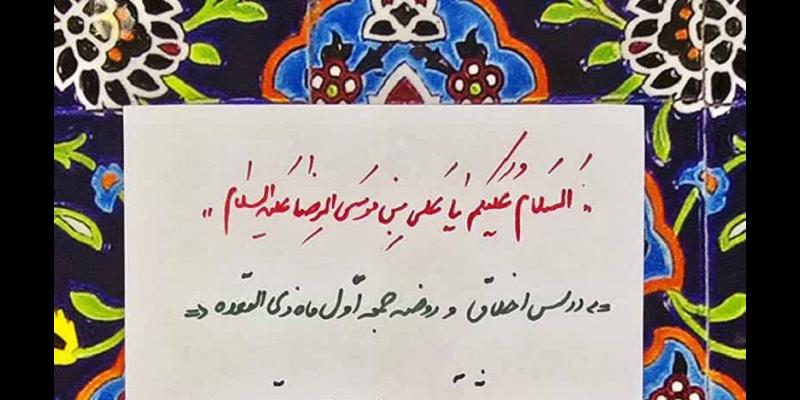 "السَلام عَلیکُم یا عَلی بنِ موسَی الرِضا عَلیهِ السَلام"
=» درس اخلاق و روضه جمعه اوّل ماه ذی القعده «=